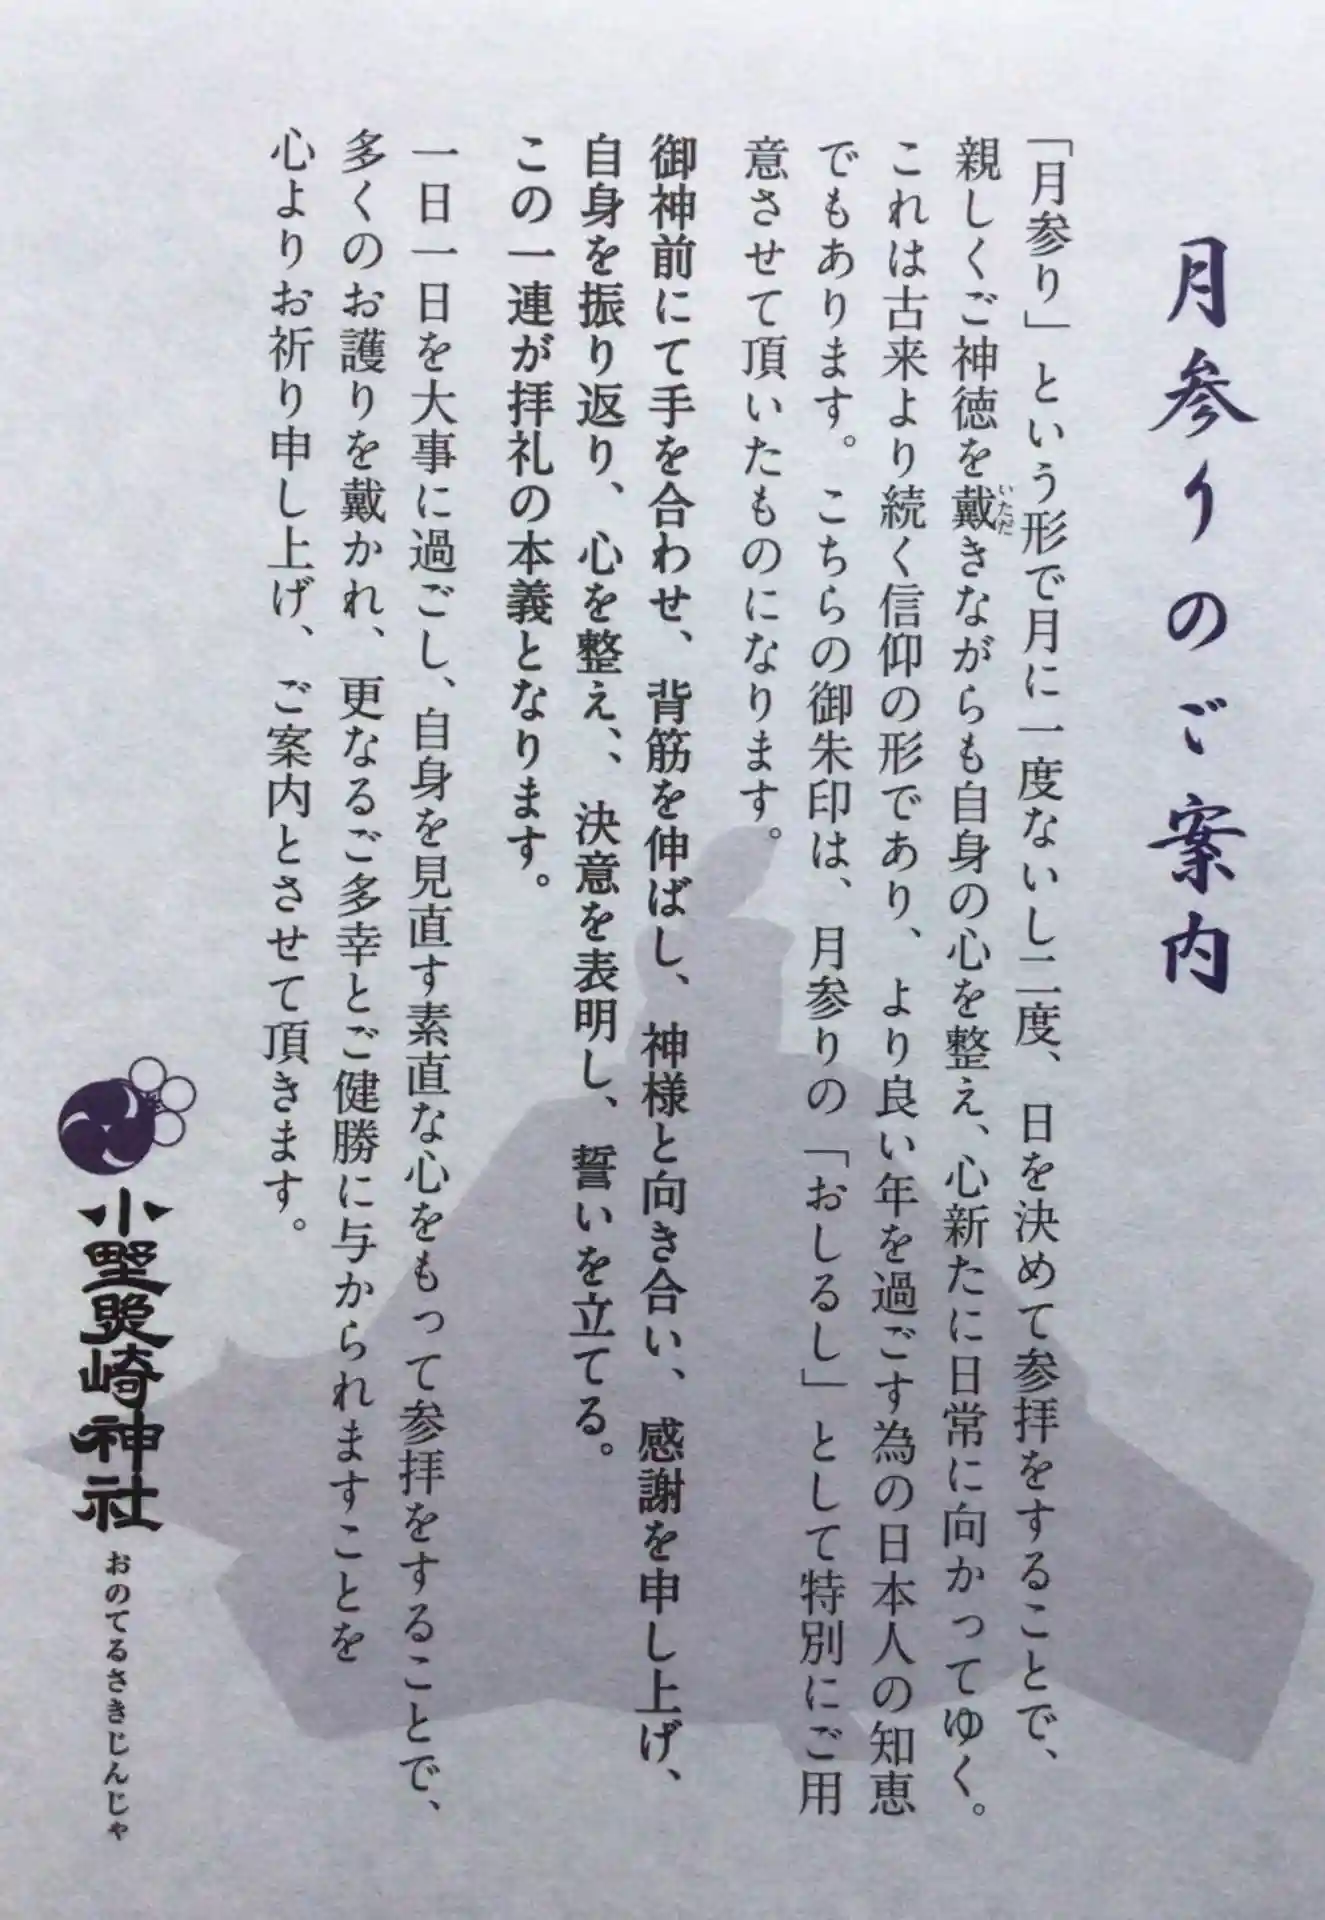 月参りのご案内
「月参り」という形で月に一度ないし二度、日を決めて参拝をすることで、
親しくご神徳を戴きながらも自身の心を整え、心新たに日常に向かってゆく。
いただ
これは古来より続く信仰の形であり、より良い年を過ごす為の日本人の知恵
でもあります。こちらの御朱印は、月参りの「おしるし」として特別にご用
意させて頂いたものになります。
御神前にて手を合わせ、背筋を伸ばし、神様と向き合い、感謝を申し上げ、
自身を振り返り、心を整え、、決意を表明し、誓いを立てる。
この一連が拝礼の本義となります。
一日一日を大事に過ごし、自身を見直す素直な心をもって参拝をすることで、
多くのお護りを戴かれ、更なるご多幸とご健勝に与かられますことを
心よりお祈り申し上げ、ご案内とさせて頂きます。
小野照崎神社
おのてるさきじんじゃ